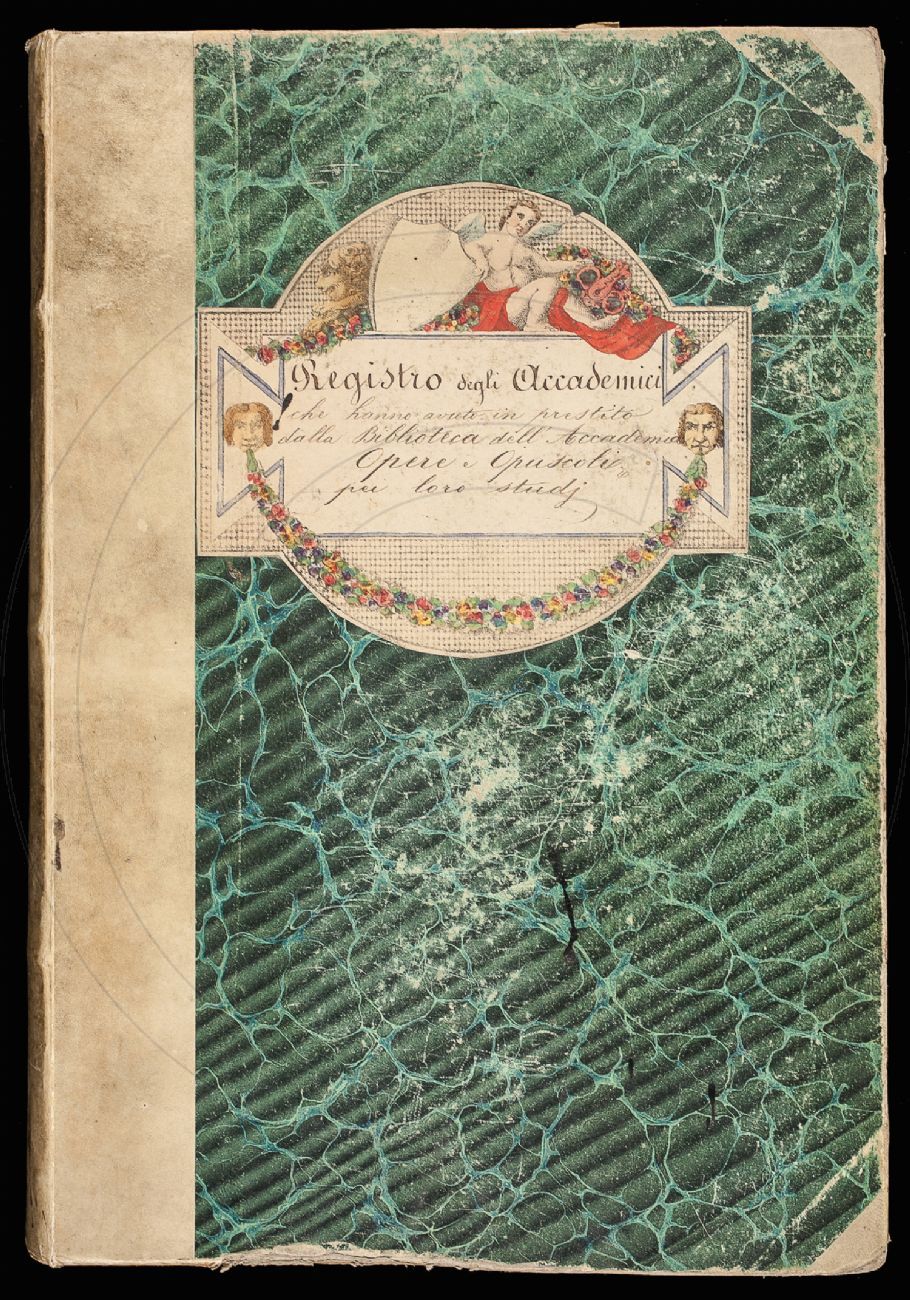 Registro degli Accademici
che hanno avuto in prestito
dalla Biblioteca dell'Accademia
Opere e Opuscoli
pei loro studj